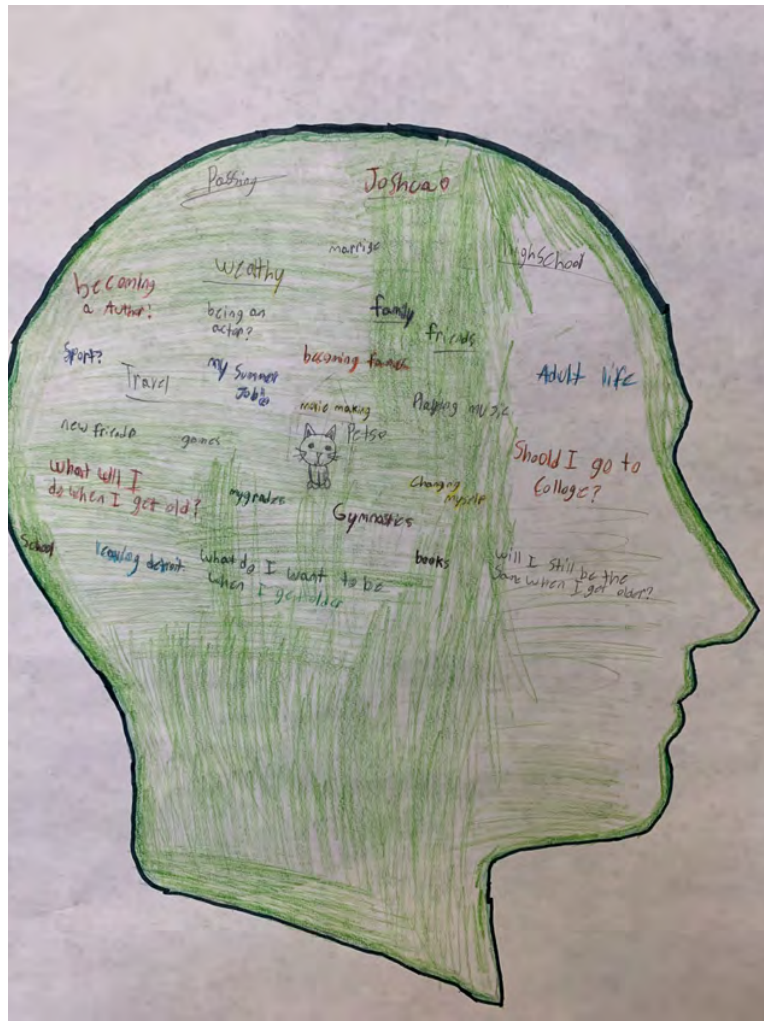 Passing
Joshua
marrige
highschool
wealthy
becoming
a Author!
being an
actor?
family
friends
Sport?
my Summer
Job
becoming
Adult life
Travel
making
Playing music
new friends
games
Pets
Should I go to
College?
what will I
do when I get old?
my grades
Changing
myself
Gymnastics
School
detroit
What do I want to be
when I get older
books
will I still be the
Same when I get older?